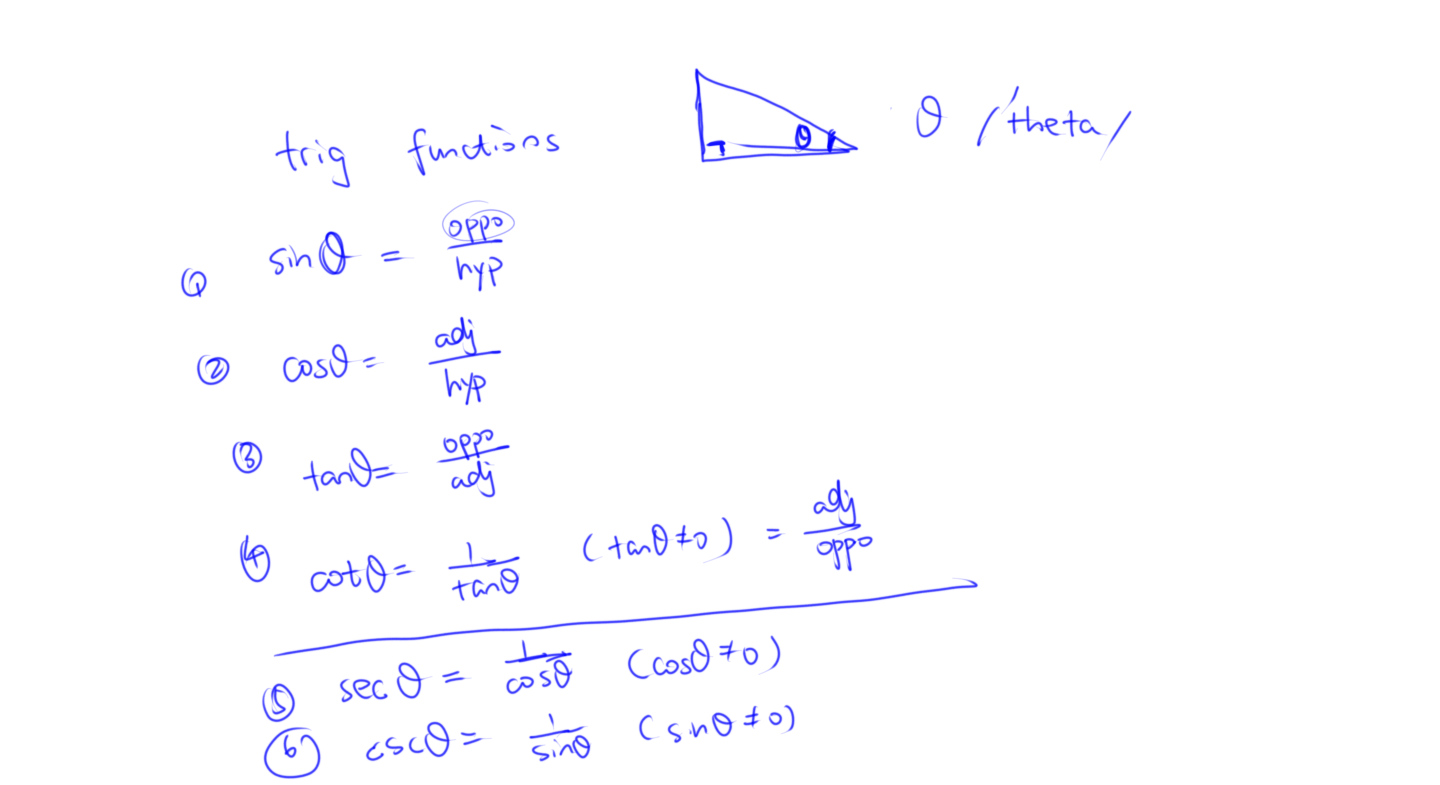 θ
θ /theta/
trig functions
① sinθ = oppo/hyp
② cosθ = adj/hyp
③ tanθ = oppo/adj
④ cotθ = 1/tanθ (tanθ≠0) = adj/oppo
⑤ secθ = 1/cosθ (cosθ≠0)
⑥ cscθ = 1/sinθ (sinθ≠0)